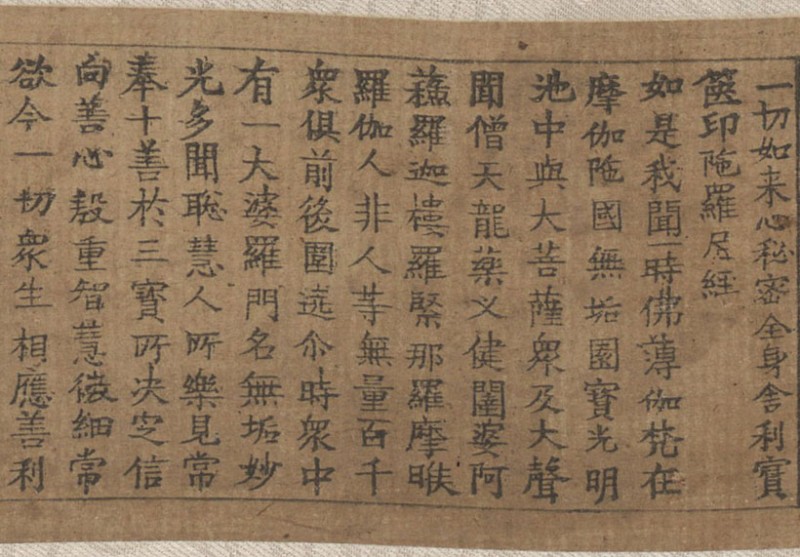 一切如来心秘密全身舍利寳
篋印陁羅尼経
如是我聞一時佛薄伽梵在
摩伽陁國無垢園寳光明
池中與大菩薩衆及大聲
聞僧天龍藥义健闥婆阿
蘓羅迦樓羅緊那羅摩睺
羅伽人非人等無量百千
衆俱前後圍遶尒時衆中
有一大婆羅門名無垢妙
光多聞聡慧人所樂見常
奉十善於三寳所决㝎信
向善心殷重智慧微細常
欲令一切衆生相應善利